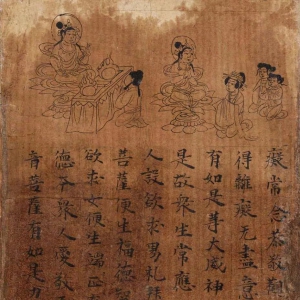 癡常念恭敬觀
得離癡无盡意
有如是等大威神
是故衆生常應
人設欲求男礼拜
菩薩便生福德智
欲求女便生端正
德夲衆人愛敬无
音菩薩有如是力